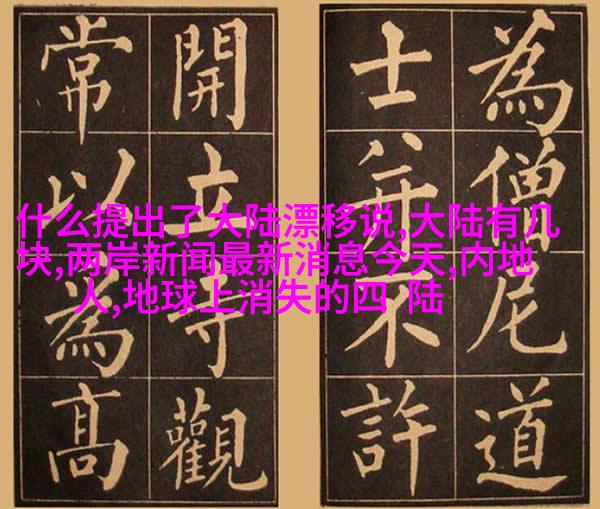 為僧尼道
士并不許
開立寺觀
常以為高
什么提出了大陆漂移说,大陆有几
块,两岸新闻最新消息今天,内地
人,地球上消失的四 陆